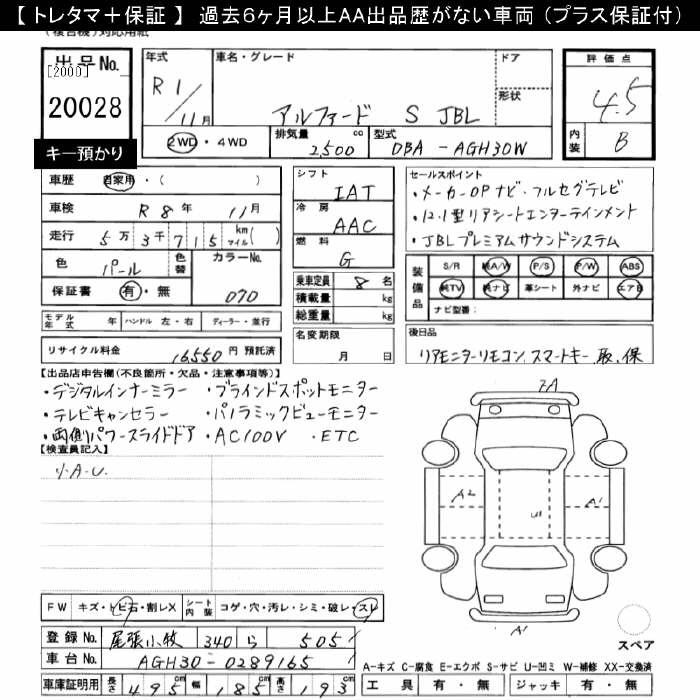 【 トレタマ＋保証 】 過去６ヶ月以上AA出品歴がない車両（プラス保証付）
出品No. [2000] 20028
キー預かり
年式 R1/11月
車名・グレード アルファード S JBL
ドア
形状
2WD・4WD
排気量 2,500 cc
型式 DBA-AGH30W
評価点 4.5
内装 B
車歴 自家用・（ ）
車検 R8年 11月
走行 5万3千715 km マイル( )
色 パール 色替 カラーNo. 070
保証書 有・無
モデル年式 年 ハンドル 左・右 ディーラー・並行
リサイクル料金 16,550円 預託済
シフト IAT
冷房 AAC
燃料 G
乗車定員 8名
積載量 kg
総重量 kg
名変期限 月 日
セールスポイント
・メーカーOPナビ・フルセグテレビ
・12.1型リアシートエンターテインメント
・JBLプレミアムサウンドシステム
装備品 S/R 純A/W P/S P/W ABS
純TV 純ナビ 革シート 外ナビ エアB
ナビ型番：
後日品
リアモニターリモコン、スマートキー、取、保
【出品店申告欄(不良箇所・欠品・注意事項等)】
・デジタルインナーミラー ・ブラインドスポットモニター
・テレビキャンセラー ・パノラミックビューモニター
・両側パワースライドドア ・AC100V ・ETC
【検査員記入】
リ.A.U.
FW キズ・トビ石・割レX シート内装 コゲ・穴・汚レ・シミ・破レ・スレ
登録No. 尾張小牧 340 ら 505
車台No. AGH30-0289165
車庫証明用 長さ 495cm 幅 185cm 高さ 193cm
A2
A1
U1
A1
スペア
A-キズ C-腐食 E-エクボ S-サビ U-凹ミ W-補修 XX-交換済
工具 有・無 ジャッキ 有・無